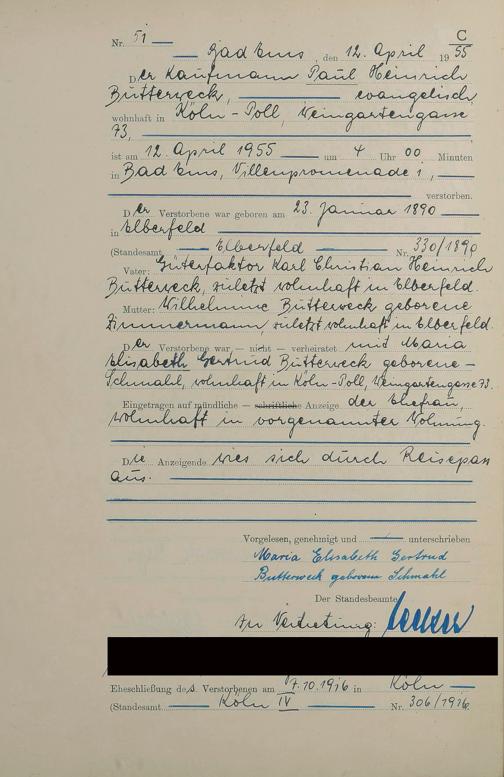 C
Nr. 51
Bad Ems, den 12. April 1955
Der Kaufmann Paul Heinrich
Butterweck, evangelisch,
wohnhaft in Köln-Poll, Weingartengasse
73,
ist am 12. April 1955 um 4 Uhr 00 Minuten
in Bad Ems, Villenpromenade 1,
verstorben.
Der Verstorbene war geboren am 23. Januar 1890
in Elberfeld
(Standesamt Elberfeld Nr. 330/1890
Vater: Güterfaktor Karl Christian Heinrich
Butterweck, zuletzt wohnhaft in Elberfeld.
Mutter: Wilhelmine Butterweck geborene
Zimmermann, zuletzt wohnhaft in Elberfeld.
Der Verstorbene war – nicht – verheiratet mit Maria
Elisabeth Gertrud Butterweck geborene –
Schmahl, wohnhaft in Köln-Poll, Weingartengasse 73.
Eingetragen auf mündliche – schriftliche Anzeige der Ehefrau,
wohnhaft in vorgenannter Wohnung.
Die Anzeigende wies sich durch Reisepass
aus.
Vorgelesen, genehmigt und unterschrieben
Maria Elisabeth Gertrud
Butterweck geborene Schmahl
Der Standesbeamte
In Vertretung:
Eheschließung des Verstorbenen am 7.10.1916 in Köln
(Standesamt Köln IV Nr. 306/1916.